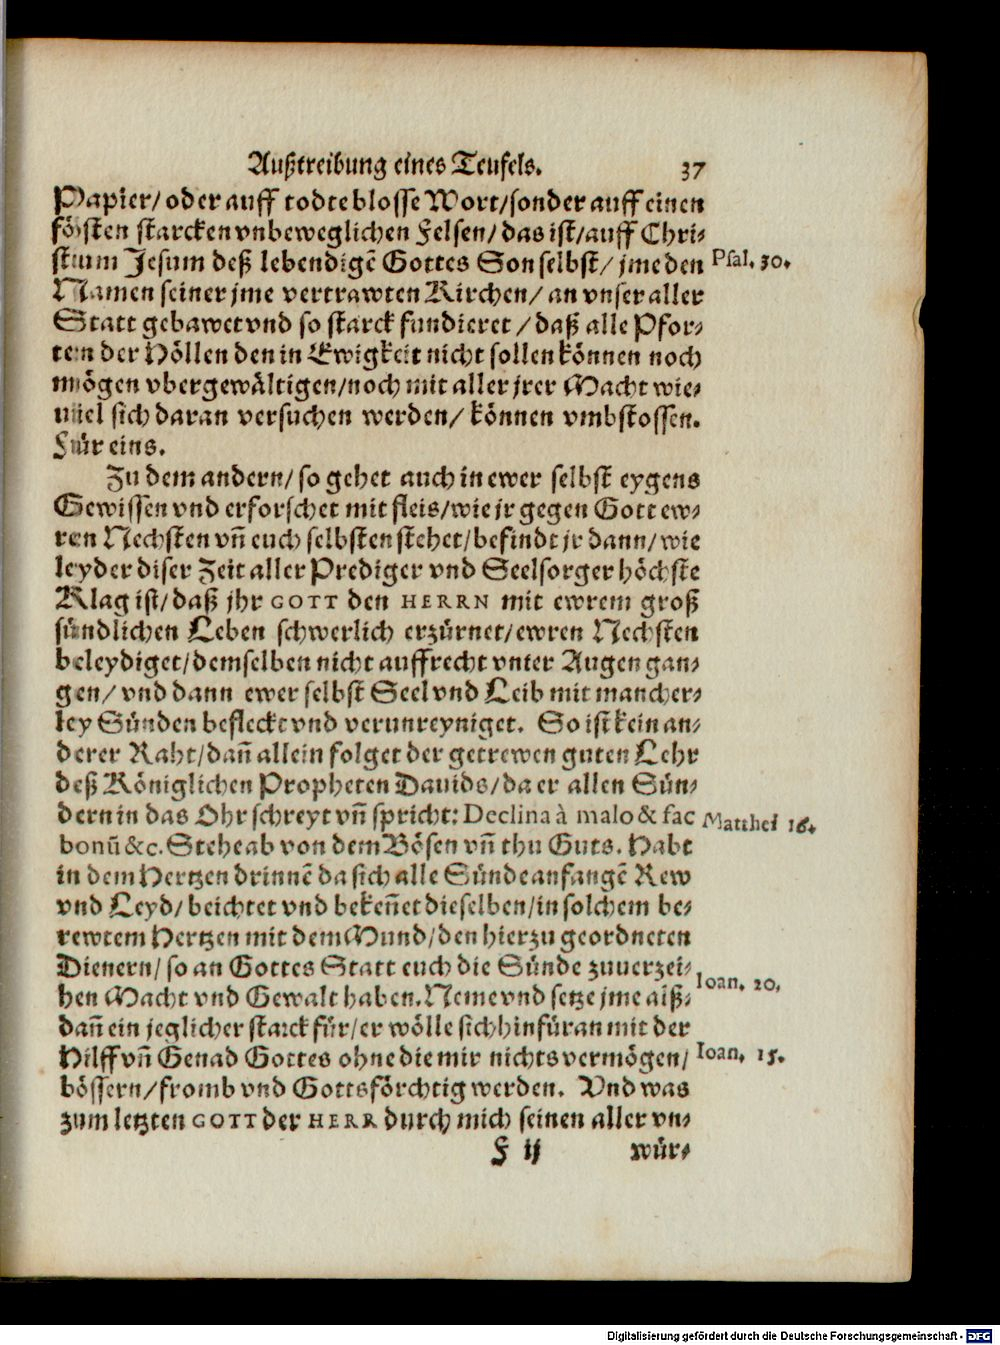 Außtreibung eines Teufels. 37
Papier/ oder auff todte blosse Wort/sonder auff einen
fösten starcken vnbeweglichen Felsen/ das ist/auff Chri-
stum Jesum deß lebendigē Gottes Son selbst/ jme den
Psal. 30.
Namen seiner jme vertrawten Kirchen/ an vnser aller
Statt gebawet vnd so starck fundieret / daß alle Pfor-
ten der Höllen den in Ewigkeit nicht sollen können noch
mögen vbergewältigen/noch mit aller jrer Macht wie-
uiel sich daran versuchen werden/ können vmbstossen.
Für eins.
Zu dem andern/ so gehet auch in ewer selbst eygens
Gewissen vnd erforschet mit fleis/wie jr gegen Gott ew-
ren Nechsten vñ euch selbsten stehet/befindt jr dann/ wie
leyder diser Zeit aller Prediger vnd Seelsorger höchste
Klag ist/ daß jhr GOTT den HERRN mit ewrem groß
sündlichen Leben schwerlich erzürnet/ewren Nechsten
beleydiget/demselben nicht auffrecht vnter Augen gan-
gen/ vnd dann ewer selbst Seel vnd Leib mit mancher-
ley Sünden befleckt vnd verunreyniget. So ist kein an-
derer Raht/dañ allein folget der getrewen guten Lehr
deß Königlichen Propheten Dauids/ da er allen Sün-
dern in das Ohr schreyt vñ spricht: Declina à malo & fac
Matthei 16.
bonū &c. Stehe ab von dem Bösen vñ thu Guts. Habt
in dem Hertzen drinnē da sich alle Sünde anfangē Rew
vnd Leyd/ beichtet vnd bekeñet dieselben/in solchem be-
rewtem Hertzen mit dem Mund/den hierzu geordneten
Dienern/ so an Gottes Statt euch die Sünde zuuerzei-
Ioan. 20.
hen Macht vnd Gewalt haben. Neme vnd setze jme alß-
dañ ein jeglicher starck für/er wölle sich hinfüran mit der
Hilff vñ Genad Gottes ohne die mir nichts vermögen/
Ioan. 15.
bössern/fromb vnd Gottsförchtig werden. Vnd was
zum letzten GOTT der HERR durch mich seinen aller vn-
F ij wür-
Digitalisierung gefördert durch die Deutsche Forschungsgemeinschaft - DFG